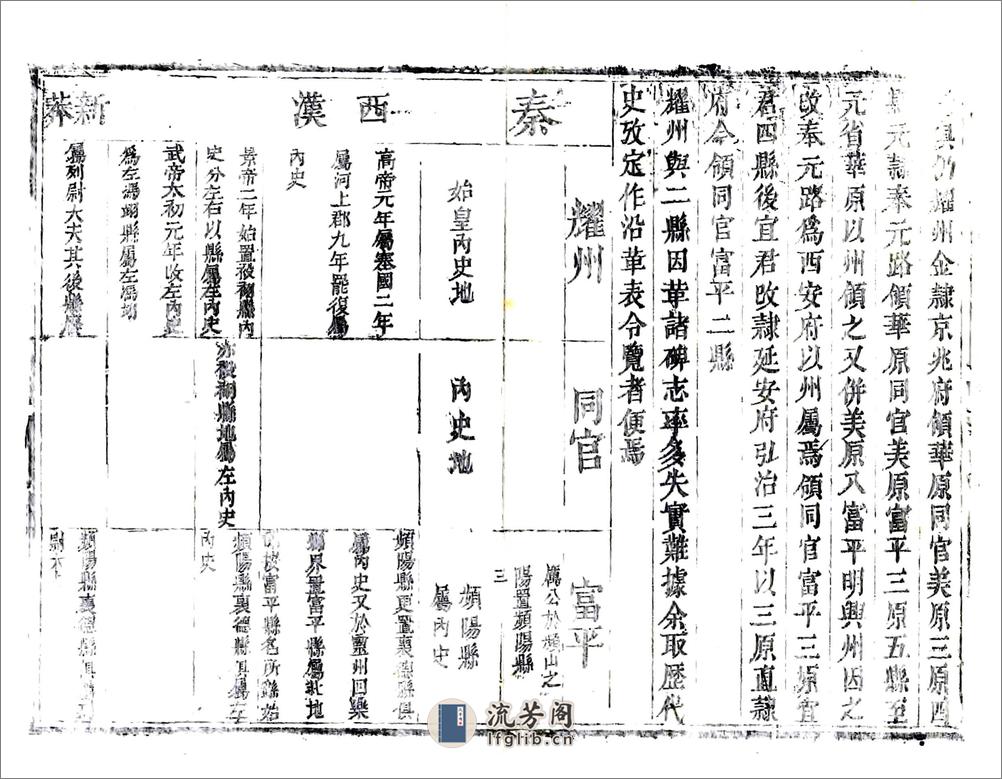 興仍耀州金隷京兆府領華原同官美原三原四
縣元隷奉元路領華原同官美原富平三原五縣至
元省華原以州領之又併美原入富平明興州因之
改奉元路爲西安府以州屬焉領同官富平三原宜
君四縣後宜君改隷延安府弘治三年以三原直隷
府今領同官富平二縣
耀州與二縣因革諸碑志率多失實難據余取歷代
史攷定作沿革表令覽者便焉
耀州
同官
富平
秦
厲公於頻山之
陽置頻陽縣
始皇內史地
內史地
頻陽縣
屬內史
西漢
高帝元年屬塞國二年
屬河上郡九年罷復屬
內史
頻陽縣更置褱德縣俱
屬內史又於靈州回樂
縣界置富平縣屬北地
富平縣名所繇始
景帝二年始置祋祤縣內
史分左右以縣屬左內史
亦祋祤縣地屬左內史
頻陽縣褱德縣俱屬左
內史
武帝太初元年改左內史
爲左馮翊縣屬左馮翊
新莽
屬列尉大夫其後縣廢
頻陽縣褱德縣俱
尉大
流芳阁
lfglib.cn